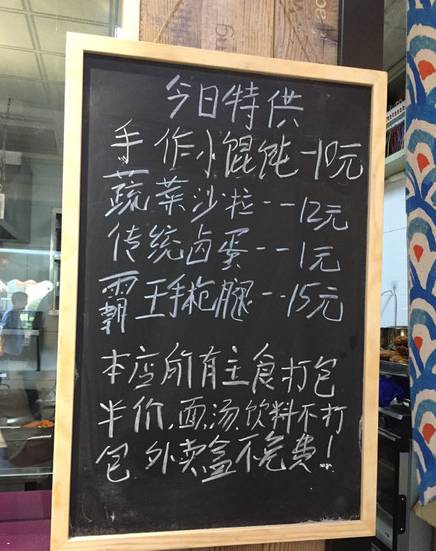 今日特供
手作小馄饨-10元
蔬菜沙拉--12元
传统卤蛋--1元
霸王手枪腿--15元
本店所有主食打包
半价.面.汤.饮料不打
包.外卖盒不免费!